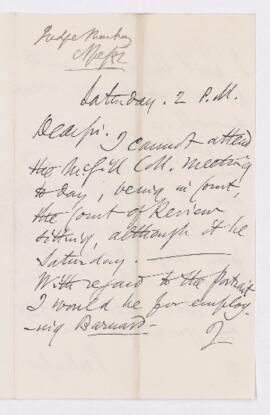 Judge
Saturday. 2 P.M.
Dear Sir. I cannot attend
the McGill Coll. Meeting
to day, being in Court,
the Court of Review
sitting, although it be
Saturday.
With regard to the Portrait
I would be for employ-
-ing Barnard -
I